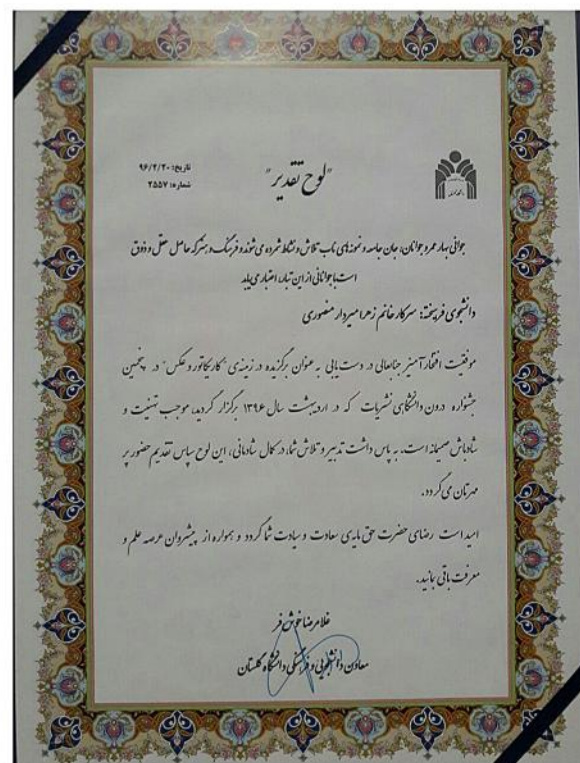 تاریخ: ۹۶/۴/۲۰
شماره: ۲۵۵۷
"لوح تقدیر"
جوانی بهار عمر و جوانان، جان جامعه و نمونه‌های ناب تلاش و نشاط شمرده می‌شوند و فرهنگ و هنر که حاصل عقل و ذوق
است با جوانانی از این تبار، اعتبار می‌یابد
دانشجوی فرهیخته: سرکار خانم زهرا میردار منصوری
موفقیت افتخارآمیز جنابعالی در دست‌یابی به عنوان برگزیده در زمینه‌ی "کاریکاتور و عکس" در پنجمین
جشنواره درون دانشگاهی نشریات که در اردیبهشت سال ۱۳۹۶ برگزار گردید، موجب تهنیت و
شادباش صمیمانه است. به پاس داشت تدبیر و تلاش شما، در کمال شادمانی، این لوح سپاس تقدیم حضور پر
مهرتان می‌گردد.
امید است رضای حضرت حق مایه‌ی سعادت و سیادت شما گردد و همواره از پیشروان عرصه علم و
معرفت باقی بمانید.
غلامرضا خوش‌فر
معاون دانشجویی و فرهنگی دانشگاه گلستان